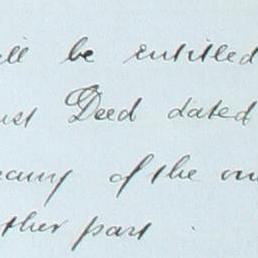 ill be entitled
ust Deed dated
pany of the on
ther part.